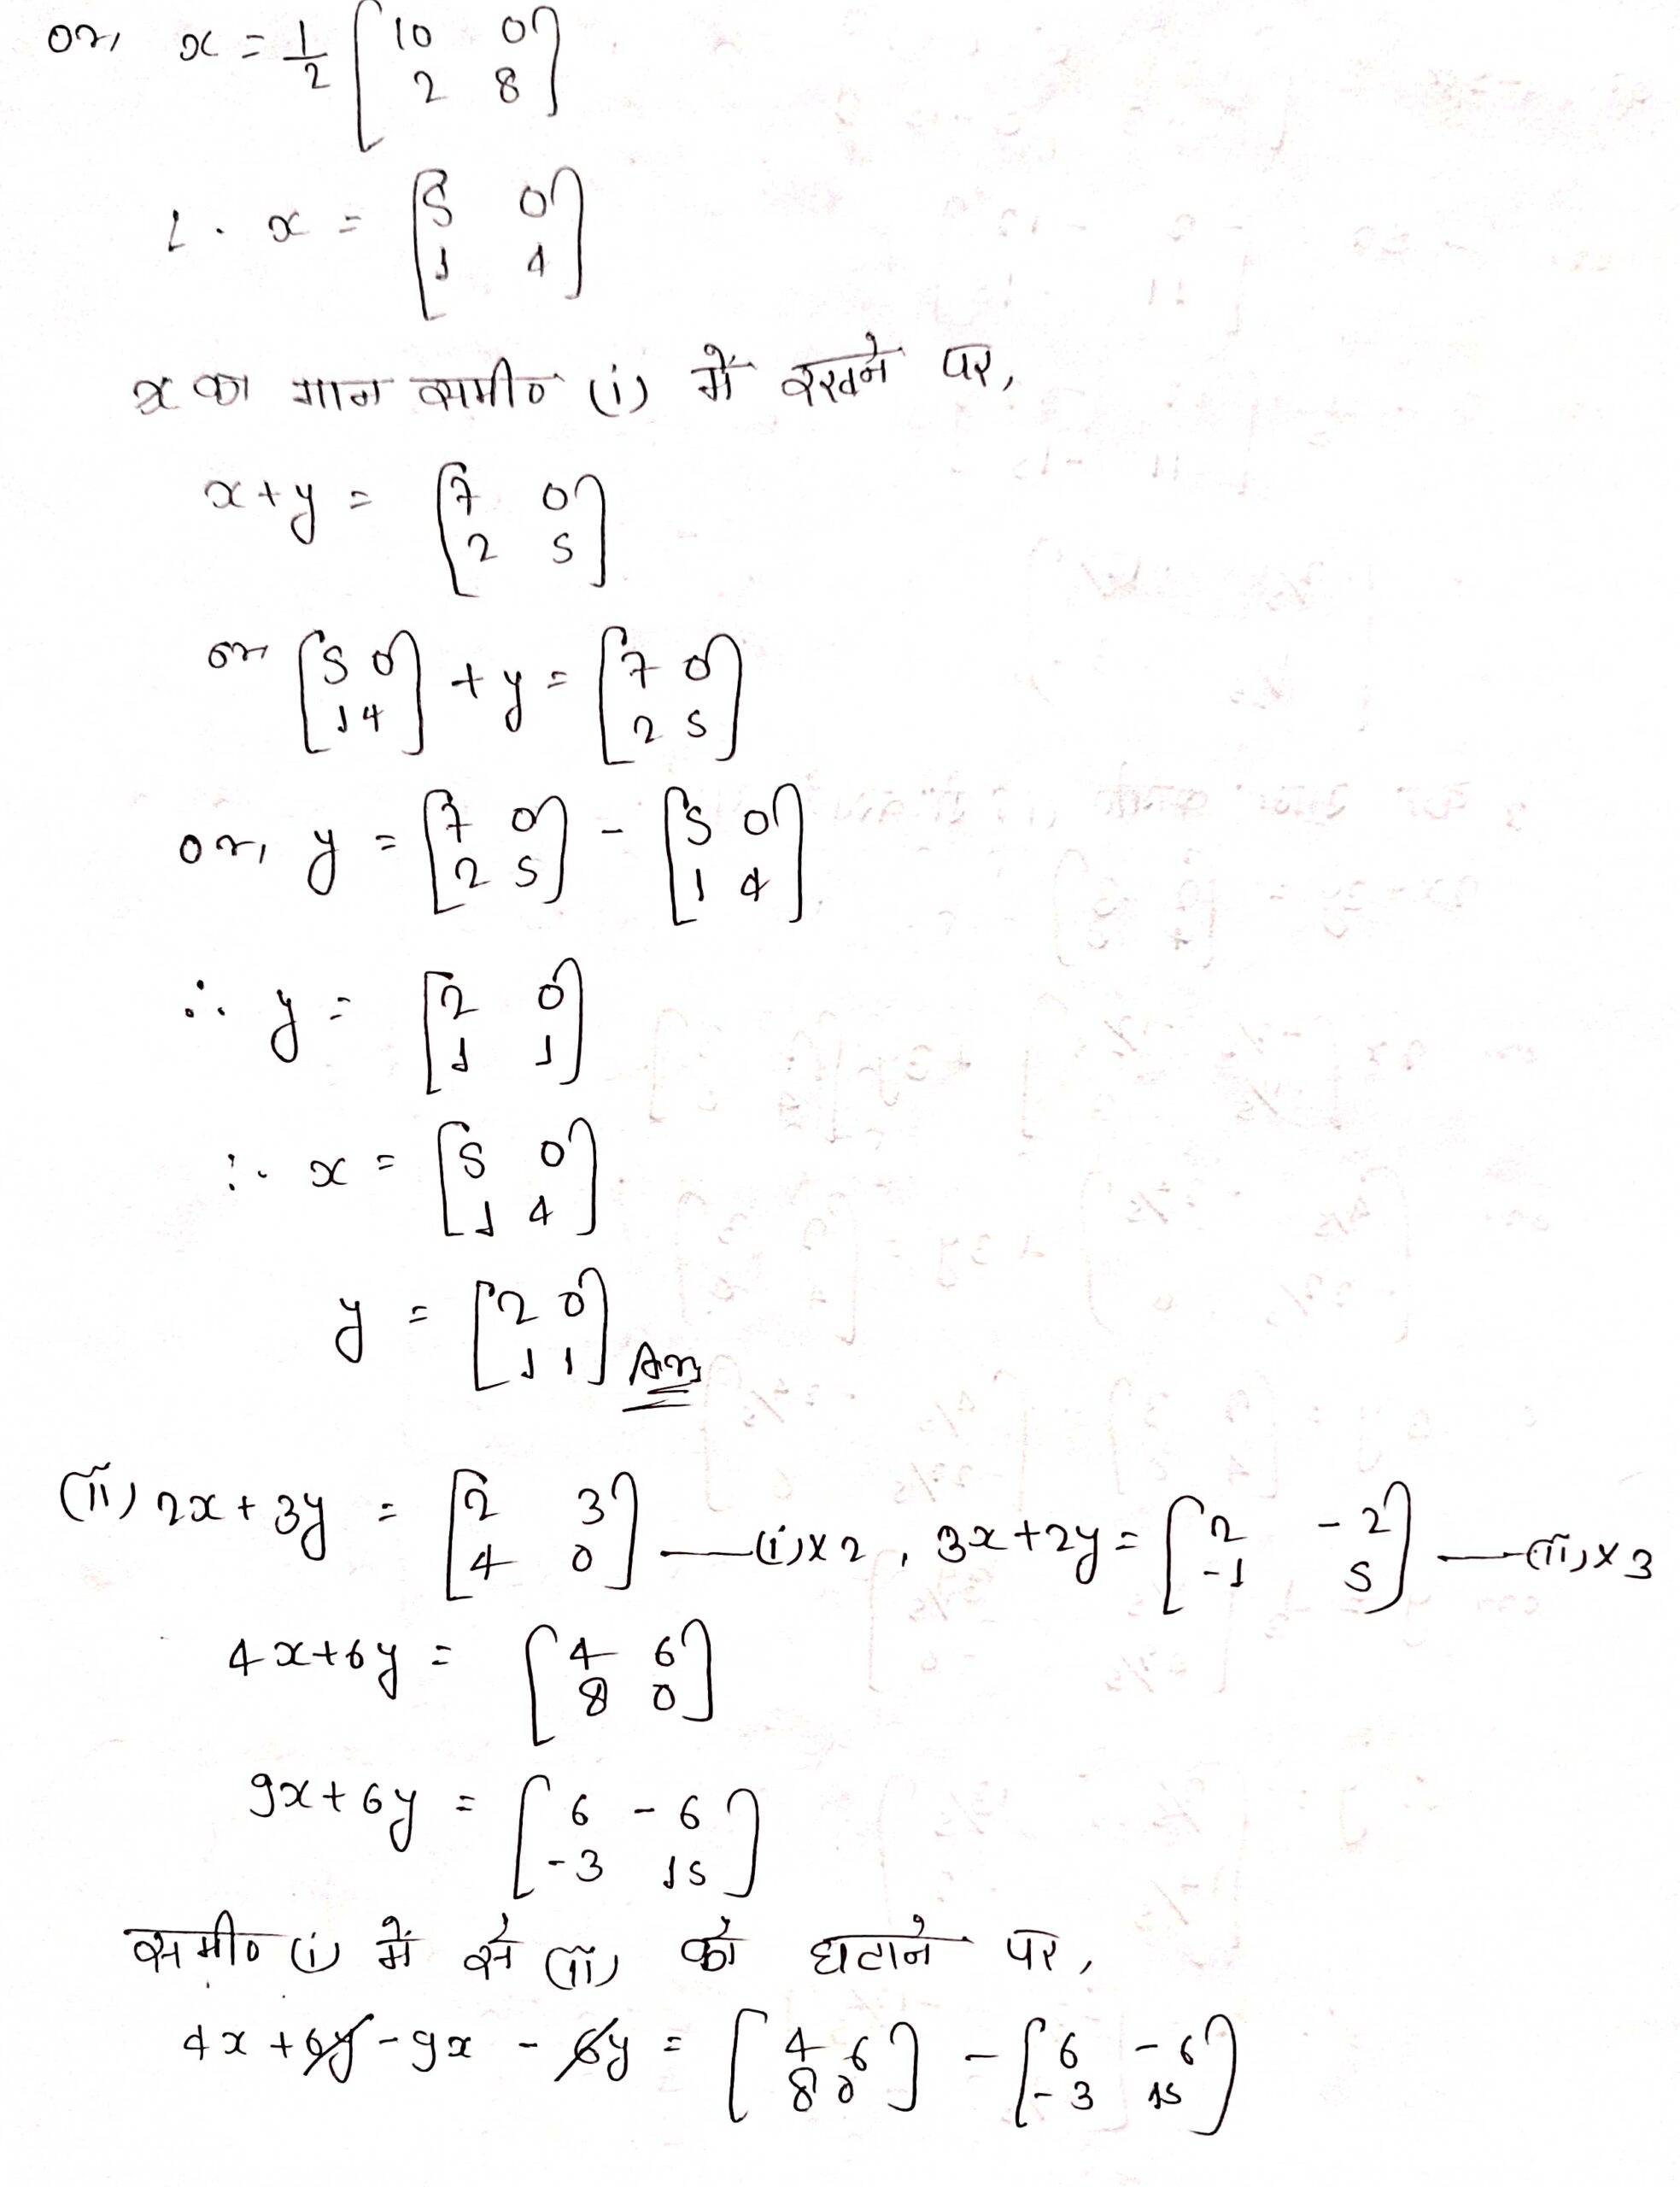 or, x = 1/2 [10 0
2 8]
∴ x = [5 0
1 4]
x का मान समी० (i) में रखने पर,
x+y = [7 0
2 5]
or [5 0
1 4] + y = [7 0
2 5]
or, y = [7 0
2 5] - [5 0
1 4]
∴ y = [2 0
1 1]
∴ x = [5 0
1 4]
y = [2 0
1 1] Ans
(ii) 2x + 3y = [2 3
4 0] —(i)×2, 3x+2y = [2 -2
-1 5] —(ii)×3
4x+6y = [4 6
8 0]
9x+6y = [6 -6
-3 15]
समी० (i) में से (ii) को घटाने पर,
4x + 6y - 9x - 6y = [4 6
8 0] - [6 -6
-3 15]